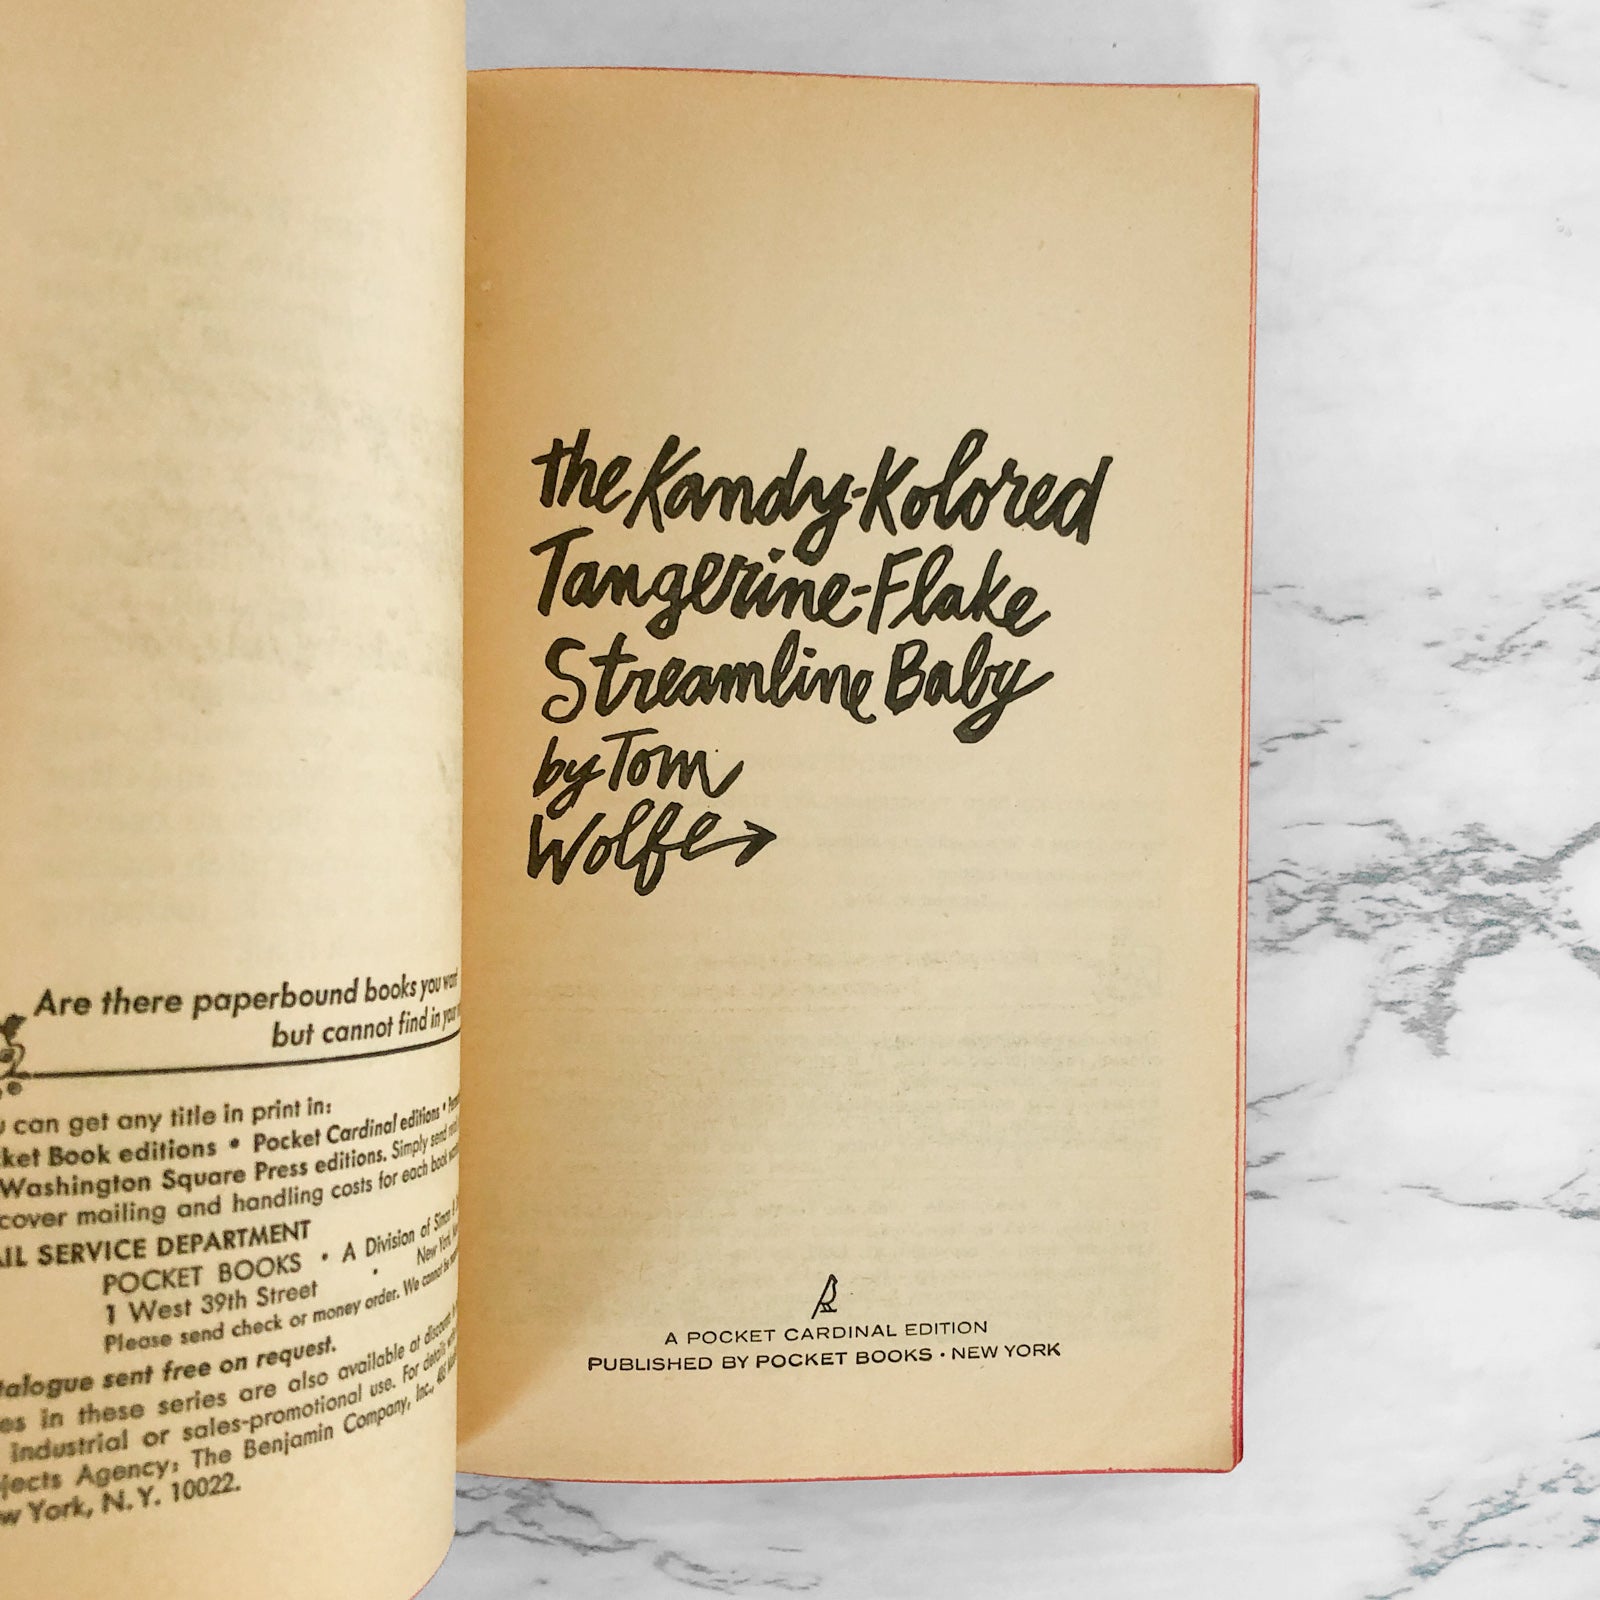 Are there paperbound books you want
but cannot find in your
can get any title in print in:
ket Book editions • Pocket Cardinal editions •
Washington Square Press editions. Simply send
cover mailing and handling costs for each book
IL SERVICE DEPARTMENT
POCKET BOOKS • A Division of Simon &
1 West 39th Street • New York,
Please send check or money order. We cannot be
talogue sent free on request.
es in these series are also available at discount
industrial or sales-promotional use. For details
jects Agency: The Benjamin Company, Inc., 485
w York, N.Y. 10022.
the Kandy-Kolored
Tangerine-Flake
Streamline Baby
by Tom
Wolfe→
A POCKET CARDINAL EDITION
PUBLISHED BY POCKET BOOKS • NEW YORK